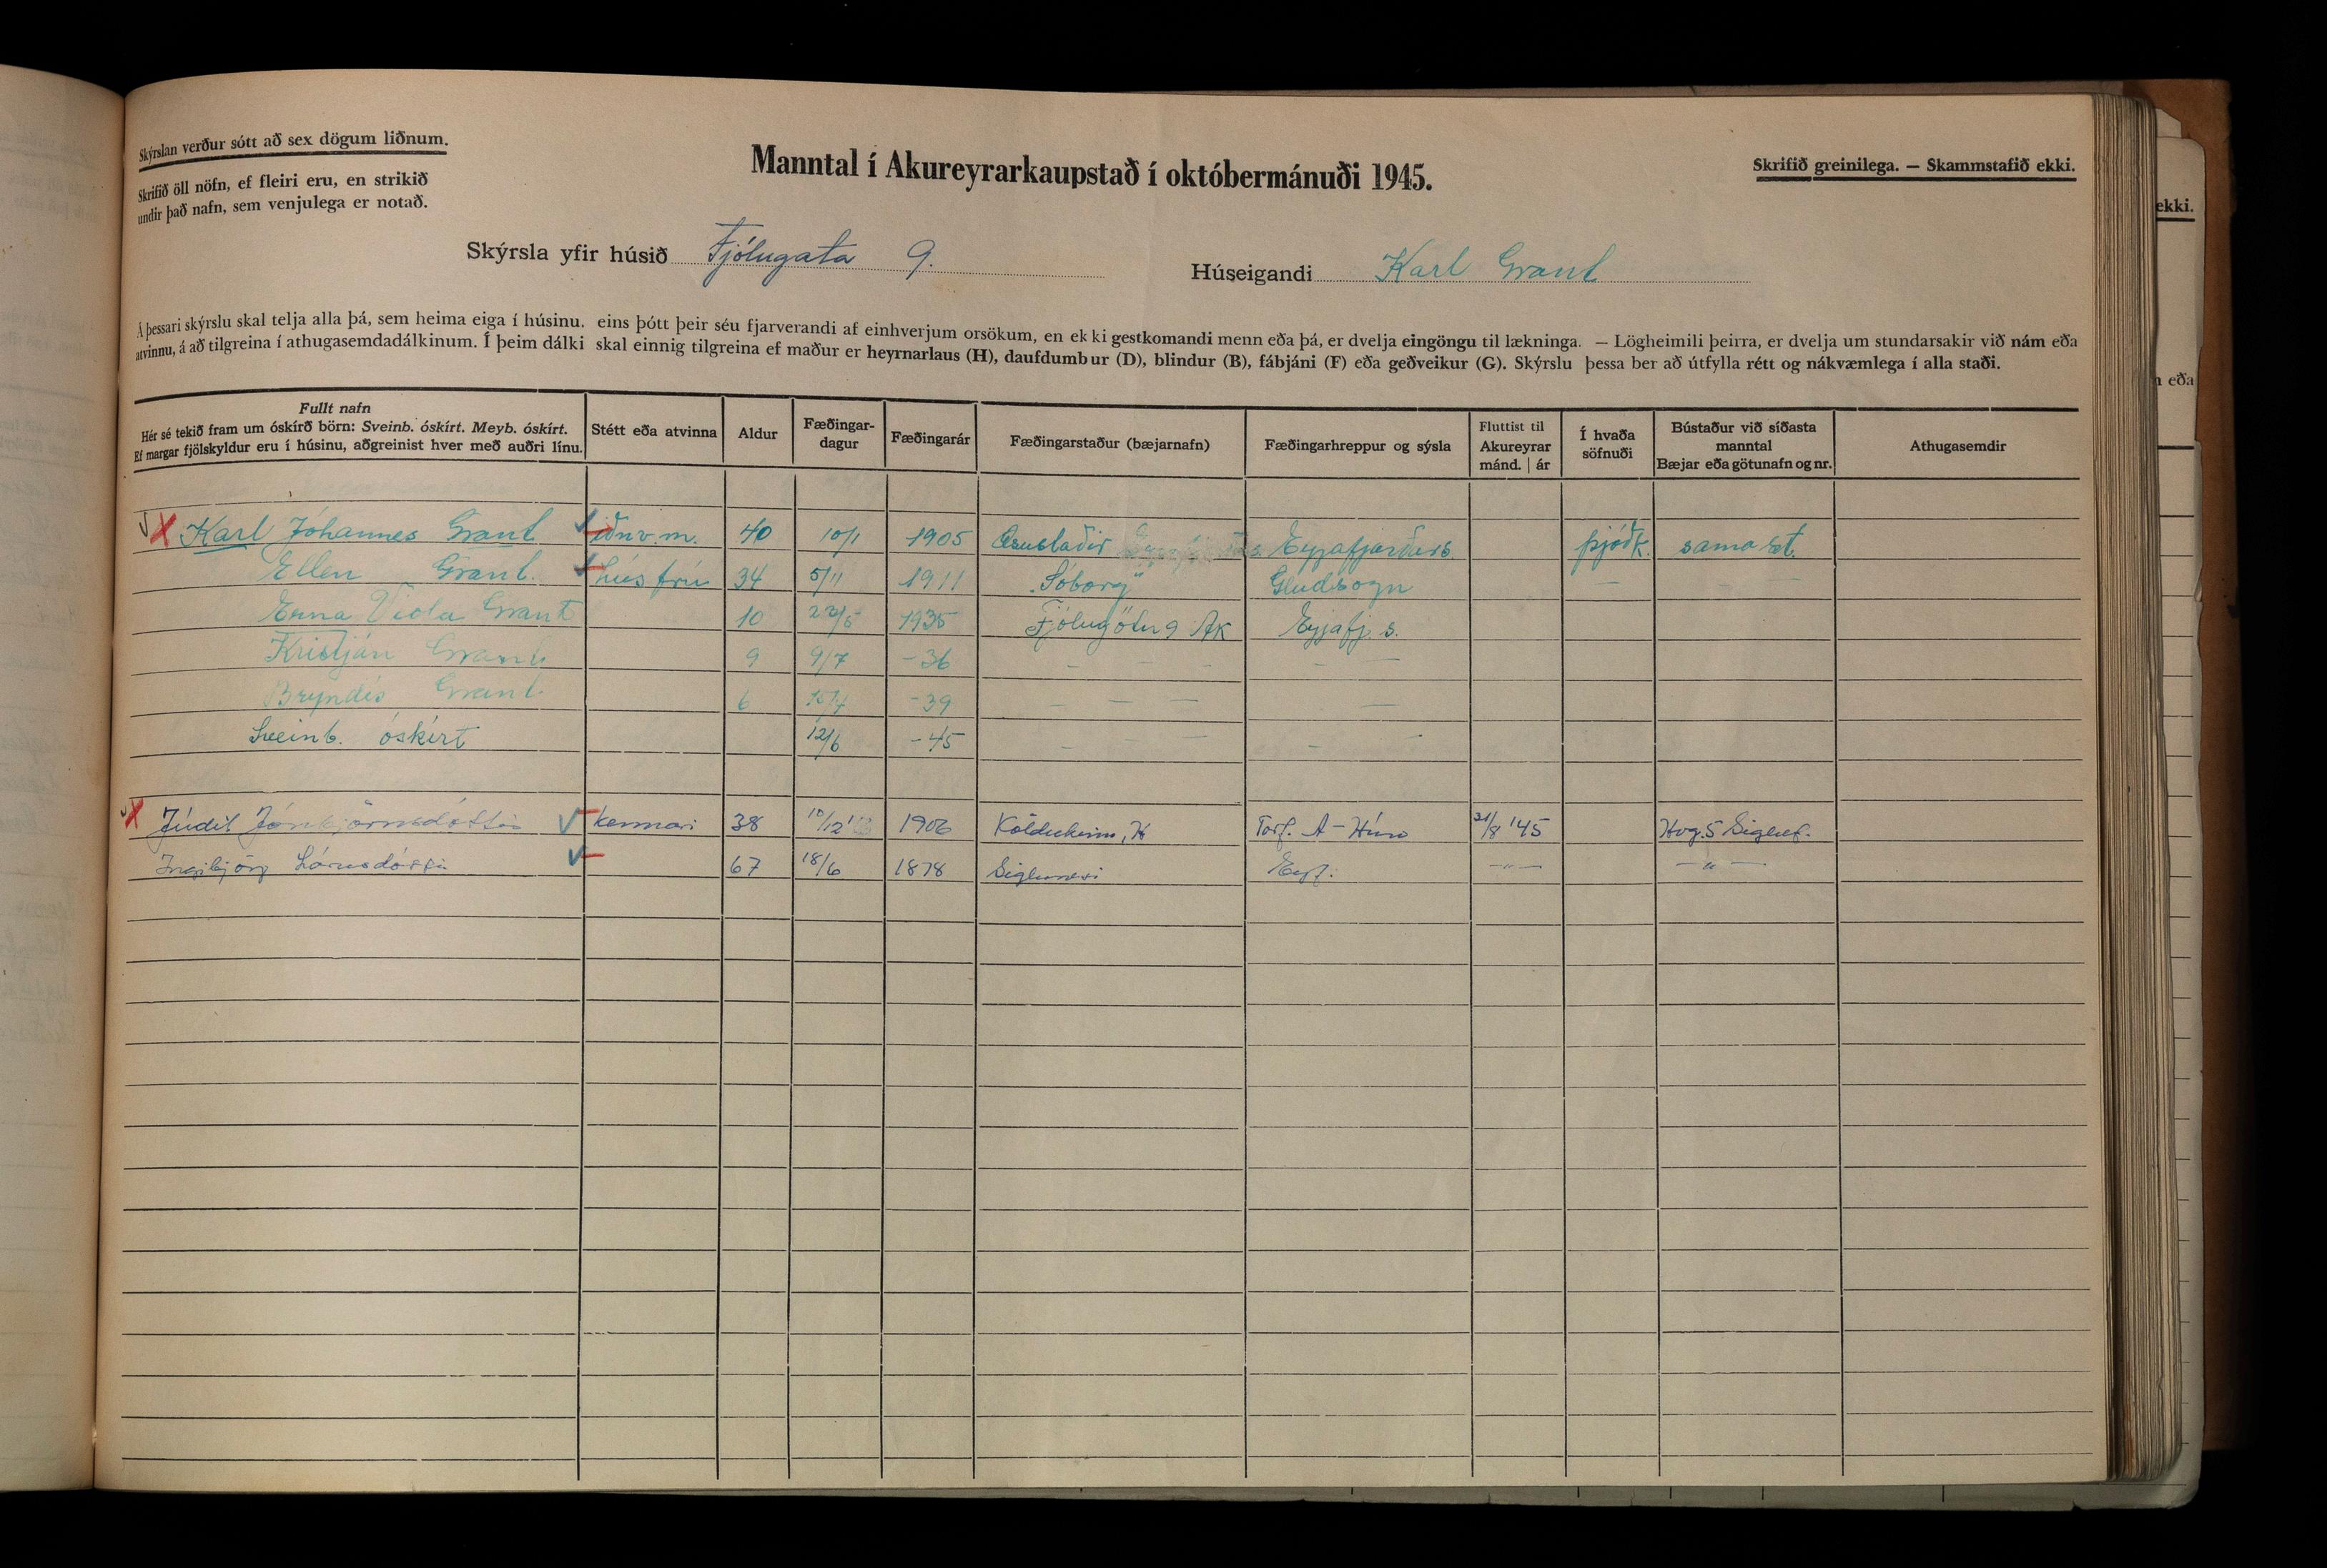 Skýrslan verður sótt að sex dögum liðnum.
Skrifið öll nöfn, ef fleiri eru, en strikið
undir það nafn, sem venjulega er notað.
Manntal í Akureyrarkaupstað í októbermánuði 1945.
Skrifið greinilega. — Skammstafið ekki.
ekki.
Skýrsla yfir húsið Fjólugata 9.
Húseigandi Karl Grant
Á þessari skýrslu skal telja alla þá, sem heima eiga í húsinu. eins þótt þeir séu fjarverandi af einhverjum orsökum, en ekki gestkomandi menn eða þá, er dvelja eingöngu til lækninga. — Lögheimili þeirra, er dvelja um stundarsakir við nám eða
atvinnu, á að tilgreina í athugasemdadálkinum. Í þeim dálki skal einnig tilgreina ef maður er heyrnarlaus (H), daufdumbur (D), blindur (B), fábjáni (F) eða geðveikur (G). Skýrslu þessa ber að útfylla rétt og nákvæmlega í alla staði.
eða
Fullt nafn
Hér sé tekið fram um óskírð börn: Sveinb. óskírt. Meyb. óskírt.
Ef margar fjölskyldur eru í húsinu, aðgreinist hver með auðri línu.
Stétt eða atvinna
Aldur
Fæðingar-
dagur
Fæðingarár
Fæðingarstaður (bæjarnafn)
Fæðingarhreppur og sýsla
Fluttist til
Akureyrar
mánd. | ár
Í hvaða
söfnuði
Bústaður við síðasta
manntal
Bæjar eða götunafn og nr.
Athugasemdir
Karl Jóhannes Grant iðnv.m. 40 10/1 1905 Eyjafjarðars. þjóðk. sama st.
Ellen Grant. húsfrú 34 5/11 1911 "Sóborg" Gludsogn — — —
Erna Viola Grant 10 1935 Fjólugötu 9 Ak Eyjafj.s.
Kristján Grant 9 9/7 -36 — — — — —
Bryndís Grant 6 -39 — — — —
Sveinb. óskírt 12/6 -45 — — — —
Júdit Jónbjörnsdóttir kennari 38 1906 Torf. A-Húna '45 Hvg. 5 Sigluf.
Ingibjörg Lárusdóttir 67 18/6 1878 Siglunesi Eyf. —"— —"—